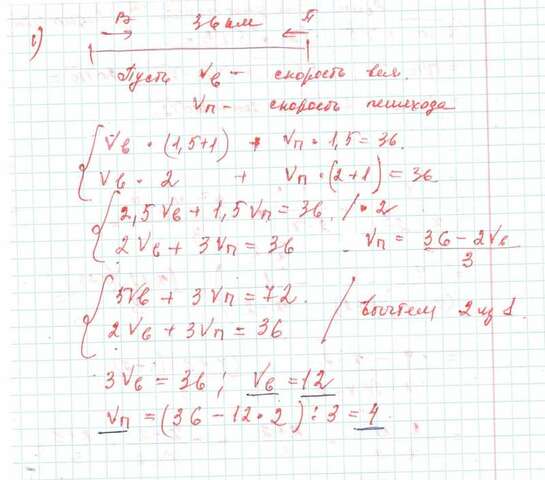 1)
В 36 км П
Пусть Vв – скорость вел.
Vп – скорость пешехода
Vв • (1,5+1) + Vп • 1,5 = 36.
Vв • 2 + Vп • (2+1) = 36
2,5Vв + 1,5Vп = 36. /• 2
2Vв + 3Vп = 36 Vп = (36 – 2Vв)/3
5Vв + 3Vп = 72.
2Vв + 3Vп = 36 / вычтем 2 из 1.
3Vв = 36 ; Vв = 12
Vп = (36 – 12 • 2) : 3 = 4